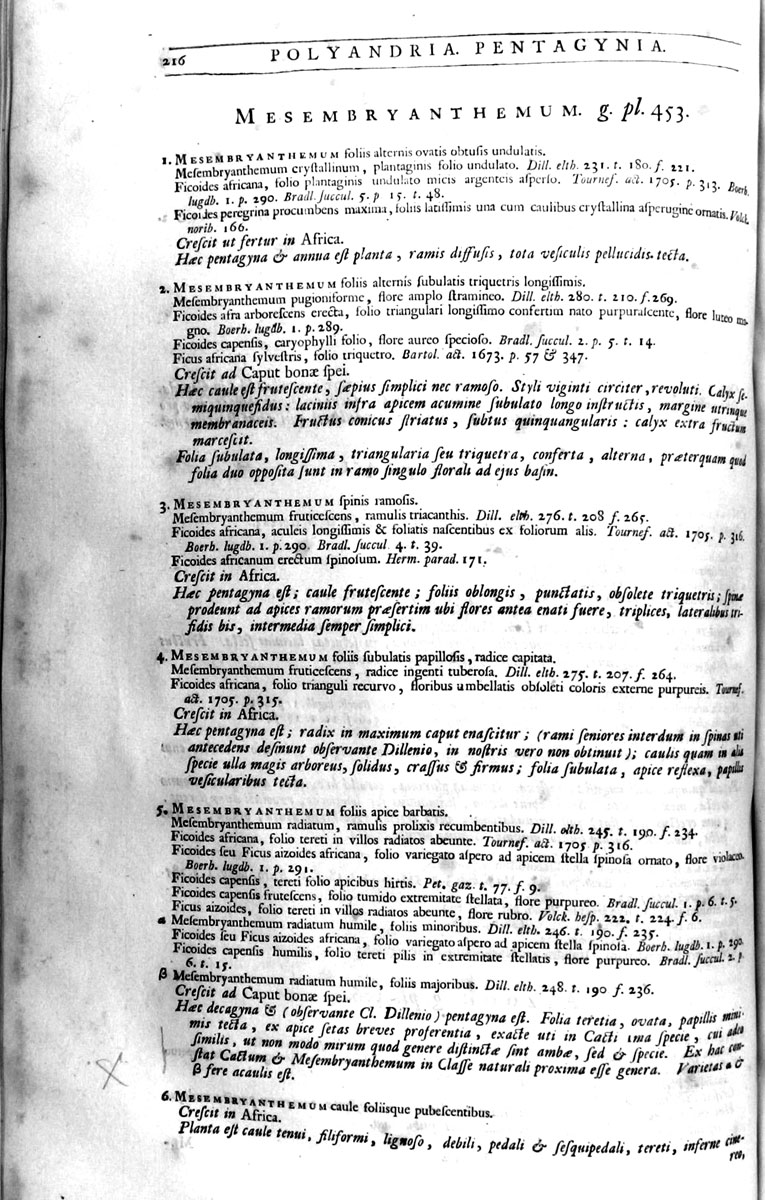 216 POLYANDRIA. PENTAGYNIA.
MESEMBRYANTHEMUM. g. pl. 453.
1. MESEMBRYANTHEMUM foliis alternis ovatis obtuſis undulatis.
Meſembryanthemum cryſtallinum, plantaginis folio undulato. Dill. elth. 231. t. 180. f. 221.
Ficoides africana, folio plantaginis undulato micis argenteis aſperſo. Tournef. act. 1705. p. 313. Boerh.
lugdb. 1. p. 290. Bradl. ſuccul. 5. p 15. t. 48.
Ficoides peregrina procumbens maxima, foliis latiſſimis una cum caulibus cryſtallina aſperugine ornatis. Volck.
norib. 166.
Creſcit ut fertur in Africa.
Hæc pentagyna & annua eſt planta, ramis diffuſis, tota veſiculis pellucidis tecta.
2. MESEMBRYANTHEMUM foliis alternis ſubulatis triquetris longiſſimis.
Meſembryanthemum pugioniforme, flore amplo ſtramineo. Dill. elth. 280. t. 210. f. 269.
Ficoides afra arboreſcens erecta, folio triangulari longiſſimo confertim nato purpuraſcente, flore luteo ma-
gno. Boerh. lugdb. 1. p. 289.
Ficoides capenſis, caryophylli folio, flore aureo ſpecioſo. Bradl. ſuccul. 2. p. 5. t. 14.
Ficus africana ſylveſtris, folio triquetro. Bartol. act. 1673. p. 57 & 347.
Creſcit ad Caput bonæ ſpei.
Hæc caule eſt fruteſcente, ſæpius ſimplici nec ramoſo. Styli viginti circiter, revoluti. Calyx ſe-
miquinquefidus: laciniis infra apicem acumine ſubulato longo inſtructis, margine utrinque
membranaceis. Fructus conicus ſtriatus, ſubtus quinquangularis: calyx extra fructum
marceſcit.
Folia ſubulata, longiſſima, triangularia ſeu triquetra, conferta, alterna, præterquam quod
folia duo oppoſita ſunt in ramo ſingulo florali ad ejus baſin.
3. MESEMBRYANTHEMUM ſpinis ramoſis.
Meſembryanthemum fruticeſcens, ramulis triacanthis. Dill. elth. 276. t. 208 f. 265.
Ficoides africana, aculeis longiſſimis & foliatis naſcentibus ex foliorum alis. Tournef. act. 1705. p. 316.
Boerh. lugdb. 1. p. 290. Bradl. ſuccul 4. t. 39.
Ficoides africanum erectum ſpinoſum. Herm. parad. 171.
Creſcit in Africa.
Hæc pentagyna eſt; caule fruteſcente; foliis oblongis, punctatis, obſolete triquetris; ſpinæ
prodeunt ad apices ramorum præſertim ubi flores antea enati fuere, triplices, lateralibus tri-
fidis bis, intermedia ſemper ſimplici.
4. MESEMBRYANTHEMUM foliis ſubulatis papilloſis, radice capitata.
Meſembryanthemum fruticeſcens, radice ingenti tuberoſa. Dill. elth. 275. t. 207. f. 264.
Ficoides africana, folio trianguli recurvo, floribus umbellatis obſoleti coloris externe purpureis. Tournef.
act. 1705. p. 315.
Creſcit in Africa.
Hæc pentagyna eſt; radix in maximum caput enaſcitur; (rami ſeniores interdum in ſpinas uti
antecedens deſinunt obſervante Dillenio, in noſtris vero non obtinuit); caulis quam in alia
ſpecie ulla magis arboreus, ſolidus, craſſus & firmus; folia ſubulata, apice reflexa, papillis
veſicularibus tecta.
5. MESEMBRYANTHEMUM foliis apice barbatis.
Meſembryanthemum radiatum, ramulis prolixis recumbentibus. Dill. elth. 245. t. 190. f. 234.
Ficoides africana, folio tereti in villos radiatos abeunte. Tournef. act. 1705 p. 316.
Ficoides ſeu Ficus aizoides africana, folio variegato aſpero ad apicem ſtella ſpinoſa ornato, flore violaceo.
Boerh. lugdb. 1. p. 291.
Ficoides capenſis, tereti folio apicibus hirtis. Pet. gaz. t. 77. f. 9.
Ficoides capenſis fruteſcens, folio tumido extremitate ſtellata, flore purpureo. Bradl. ſuccul. 1. p. 6. t. 5.
Ficus aizoides, folio tereti in villos radiatos abeunte, flore rubro. Volck. heſp. 222. t. 224. f. 6.
α Meſembryanthemum radiatum humile, foliis minoribus. Dill. elth. 246. t. 190. f. 235.
Ficoides ſeu Ficus aizoides africana, folio variegato aſpero ad apicem ſtella ſpinoſa. Boerh. lugdb. 1. p. 290.
Ficoides capenſis humilis, folio tereti pilis in extremitate ſtellatis, flore purpureo. Bradl. ſuccul. 2. p
6. t. 15.
β Meſembryanthemum radiatum humile, foliis majoribus. Dill. elth. 248. t. 190 f. 236.
Creſcit ad Caput bonæ ſpei.
Hæc decagyna & (obſervante Cl. Dillenio) pentagyna eſt. Folia teretia, ovata, papillis mini-
mis tecta, ex apice ſetas breves proferentia, exacte uti in Cacti 1ma ſpecie, cui adeo
ſimilis, ut non modo mirum quod genere diſtinctæ ſint ambæ, ſed & ſpecie. Ex hac con-
ſtat Cactum & Meſembryanthemum in Claſſe naturali proxima eſſe genera. Varietas α &
β fere acaulis eſt.
6. MESEMBRYANTHEMUM caule foliisque pubeſcentibus.
Creſcit in Africa.
Planta eſt caule tenui, filiformi, lignoſo, debili, pedali & ſeſquipedali, tereti, inferne cine-
reo,